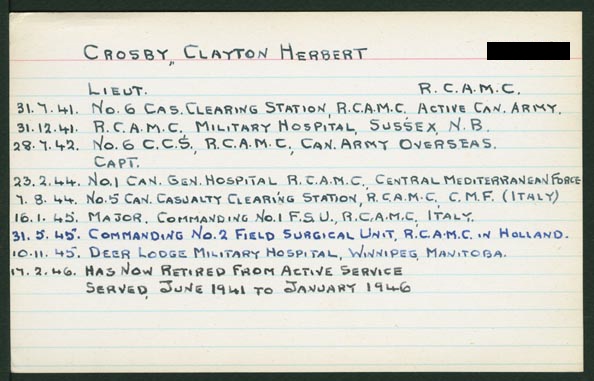 CROSBY, CLAYTON HERBERT
LIEUT. R.C.A.M.C.
31.7.41. NO. 6 CAS. CLEARING STATION, R.C.A.M.C. ACTIVE CAN. ARMY.
31.12.41. R.C.A.M.C. MILITARY HOSPITAL, SUSSEX, N.B.
28.7.42. NO. 6 C.C.S., R.C.A.M.C., CAN. ARMY OVERSEAS.
CAPT.
23.2.44. NO.1 CAN. GEN. HOSPITAL R.C.A.M.C., CENTRAL MEDITERRANEAN FORCE
7.8.44. NO.5 CAN. CASUALTY CLEARING STATION, R.C.A.M.C., C.M.F. (ITALY)
16.1.45. MAJOR, COMMANDING NO.1 F.S.U., R.C.A.M.C., ITALY.
31.5.45. COMMANDING NO.2 FIELD SURGICAL UNIT, R.C.A.M.C. IN HOLLAND.
10.11.45. DEER LODGE MILITARY HOSPITAL, WINNIPEG, MANITOBA.
17.2.46. HAS NOW RETIRED FROM ACTIVE SERVICE
SERVED, JUNE 1941 TO JANUARY 1946